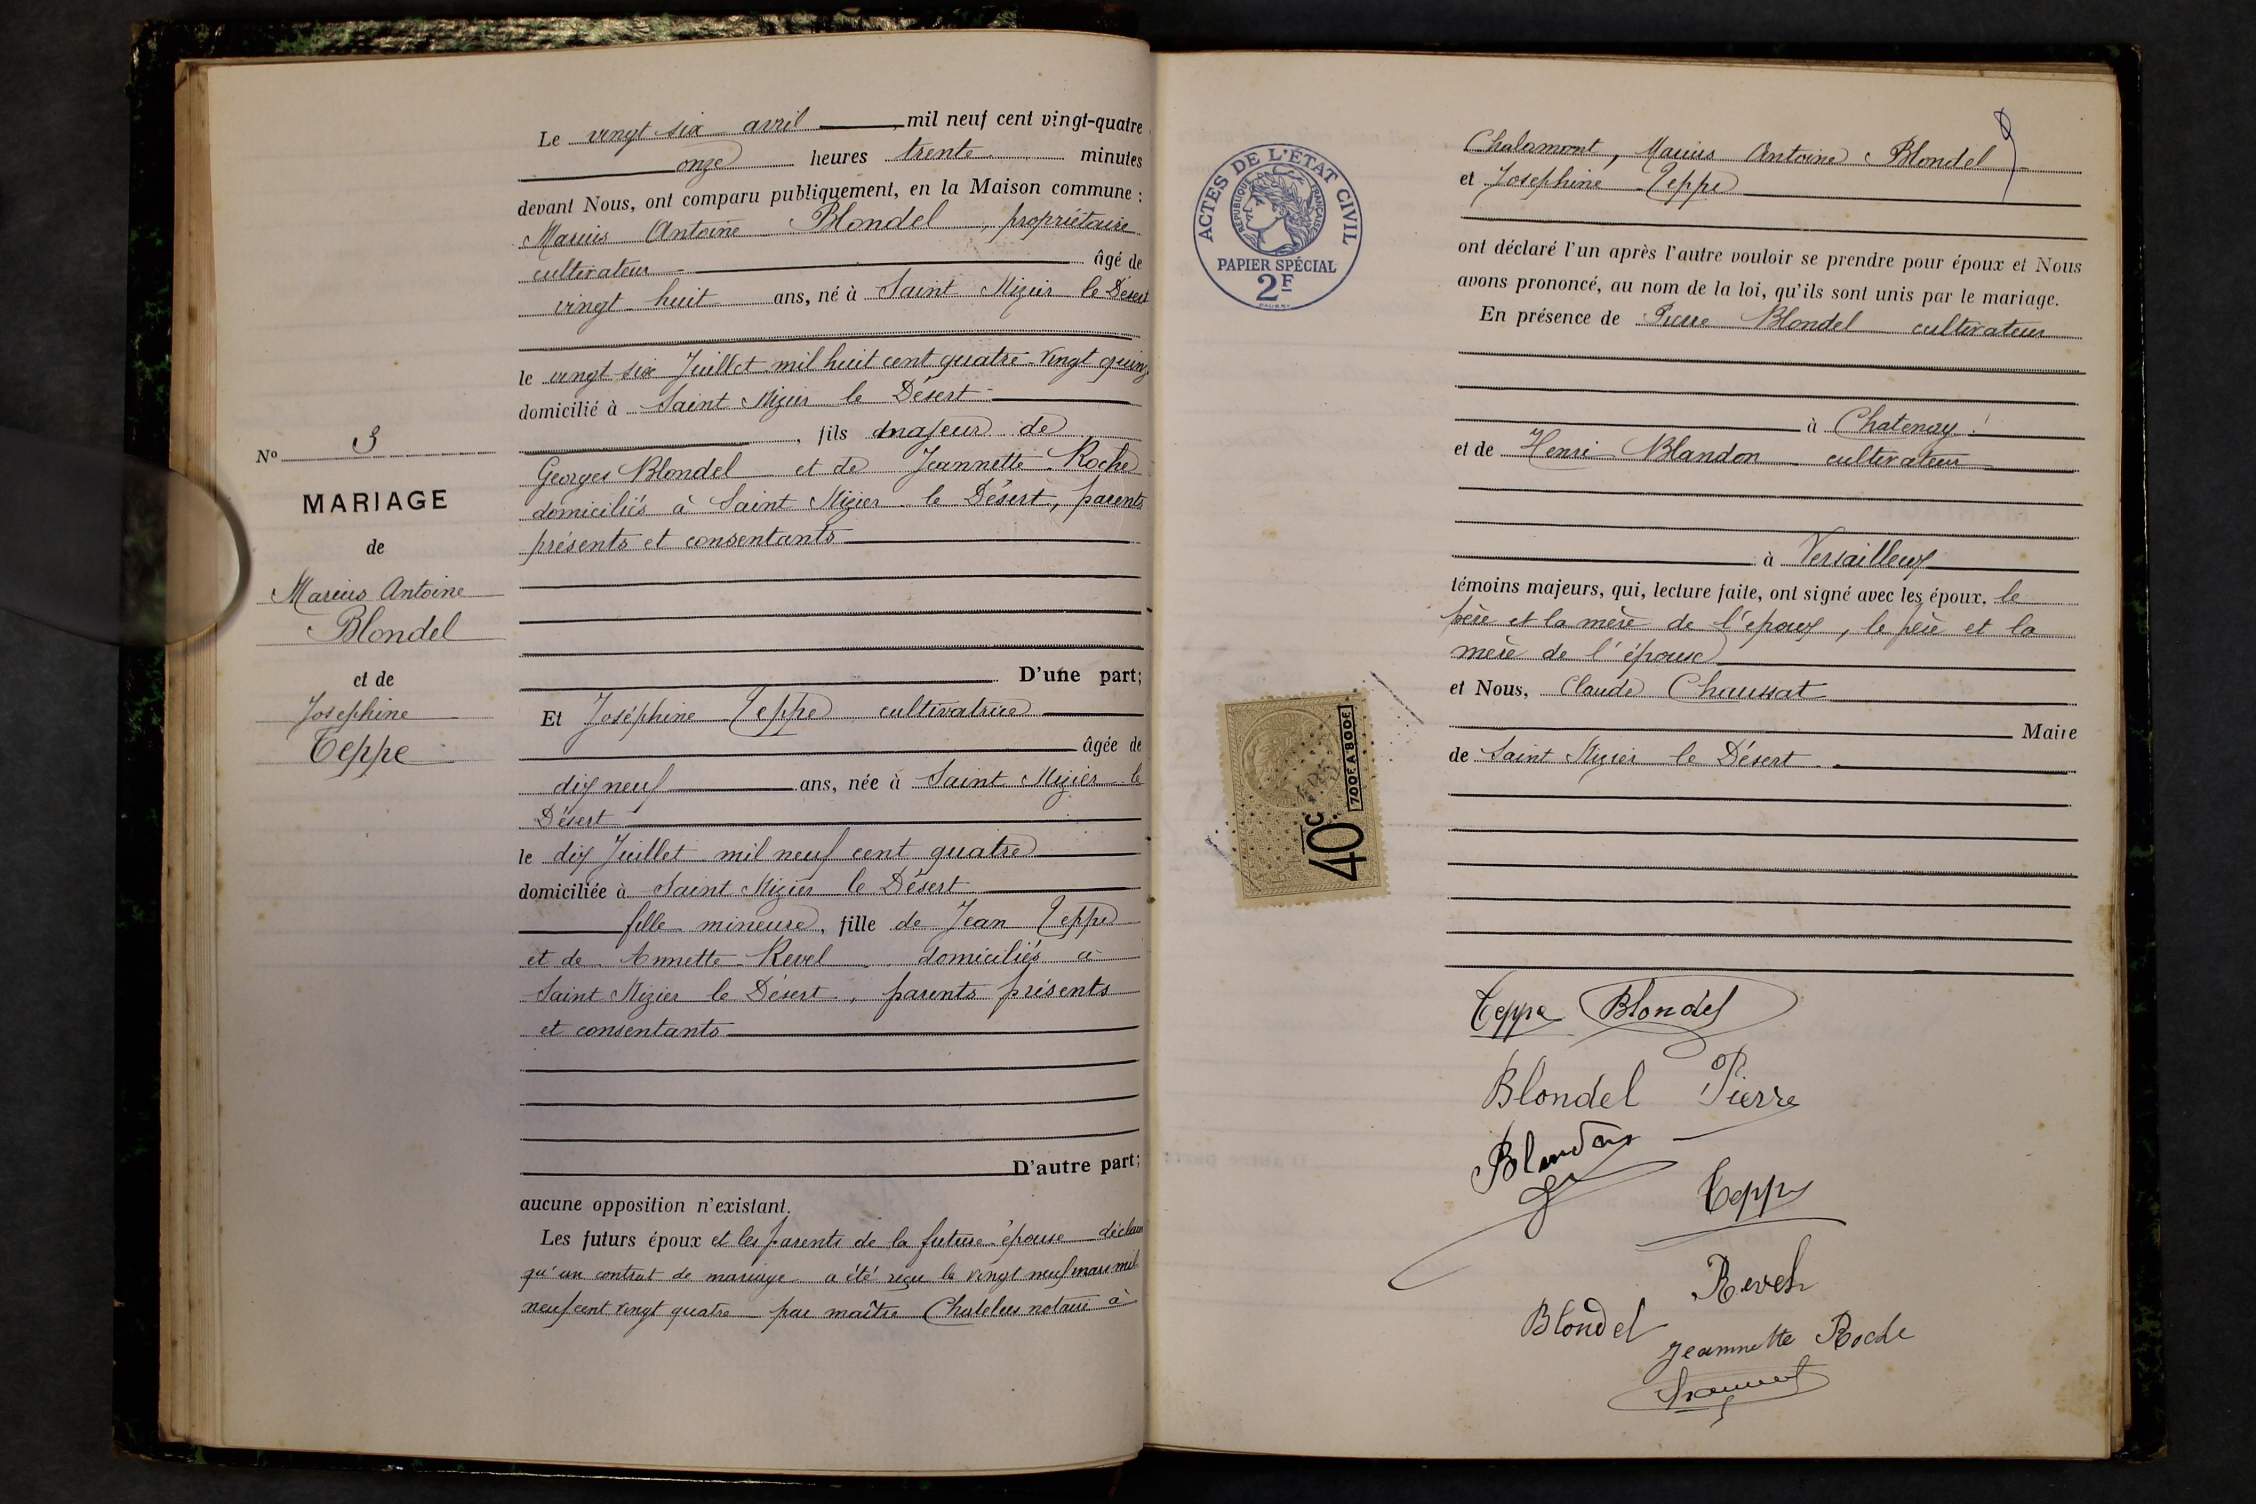 Le vingt six avril mil neuf cent vingt-quatre
onze heures trente minutes
devant Nous, ont comparu publiquement, en la Maison commune :
Marius Antoine Blondel, propriétaire
cultivateur âgé de
vingt huit ans, né à Saint Nizier le Désert
le vingt six Juillet mil huit cent quatre-vingt quinz
domicilié à Saint Nizier le Désert
, fils majeur de
Georges Blondel et de Jeannette Roche
domiciliés à Saint Nizier le Désert, parents
présents et consentants
D'une part;
Et Joséphine Teppe cultivatrice
âgée de
dix neuf ans, née à Saint Nizier le
Désert
le dix Juillet mil neuf cent quatre
domiciliée à Saint Nizier le Désert
fille mineure, fille de Jean Teppe
et de Annette Revel domiciliés à
Saint Nizier le Désert, parents présents
et consentants
D'autre part;
aucune opposition n'existant.
Les futurs époux et les parents de la future épouse déclarent
qu'un contrat de mariage a été reçu le vingt neuf mars mil
neuf cent vingt quatre par maître Chatelus notaire à
No 3
MARIAGE
de
Marius Antoine
Blondel
et de
Josephine
Teppe
ACTES DE L'ÉTAT CIVIL
RÉPUBLIQUE FRANÇAISE
PAPIER SPÉCIAL
2F
Chalamont, Marius Antoine Blondel
et Josephine Teppe
ont déclaré l'un après l'autre vouloir se prendre pour époux et Nous
avons prononcé, au nom de la loi, qu'ils sont unis par le mariage.
En présence de Pierre Blondel cultivateur
à Chatenay
et de Henri Blandon cultivateur
à Versailleux
témoins majeurs, qui, lecture faite, ont signé avec les époux, le
père et la mère de l'époux, le père et la
mère de l'épouse
et Nous, Claude Chaussat
Maire
de Saint Nizier le Désert
40c
700F A 800F
Teppe Blondel
Blondel Pierre
Blandon
Teppe
Revel
Blondel
Jeannette Roche
Chaussat